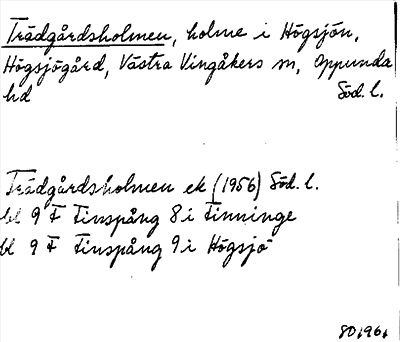 Trädgårdsholmen, holme i Högsjön,
Högsjögård, Västra Vingåkers sn, Oppunda
hd Söd. l.
Trädgårdsholmen ek (1956) Söd. l.
bl 9 F Finspång 8 i Finninge
bl 9 F Finspång 9 i Högsjö
80,96,